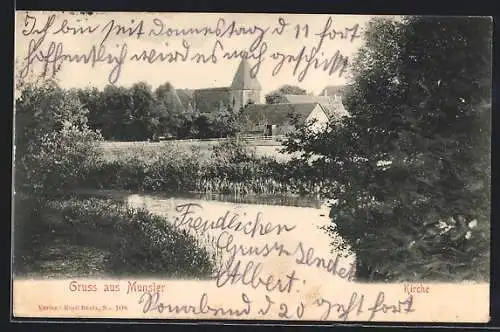 Ich bin seit Donnestag d 11 fort
hoffentlich wird es nach geschickt
Freundlichen
Gruss sendet
Albert
Gruss aus Munster
Kirche
Sonnabend d 20 geht fort